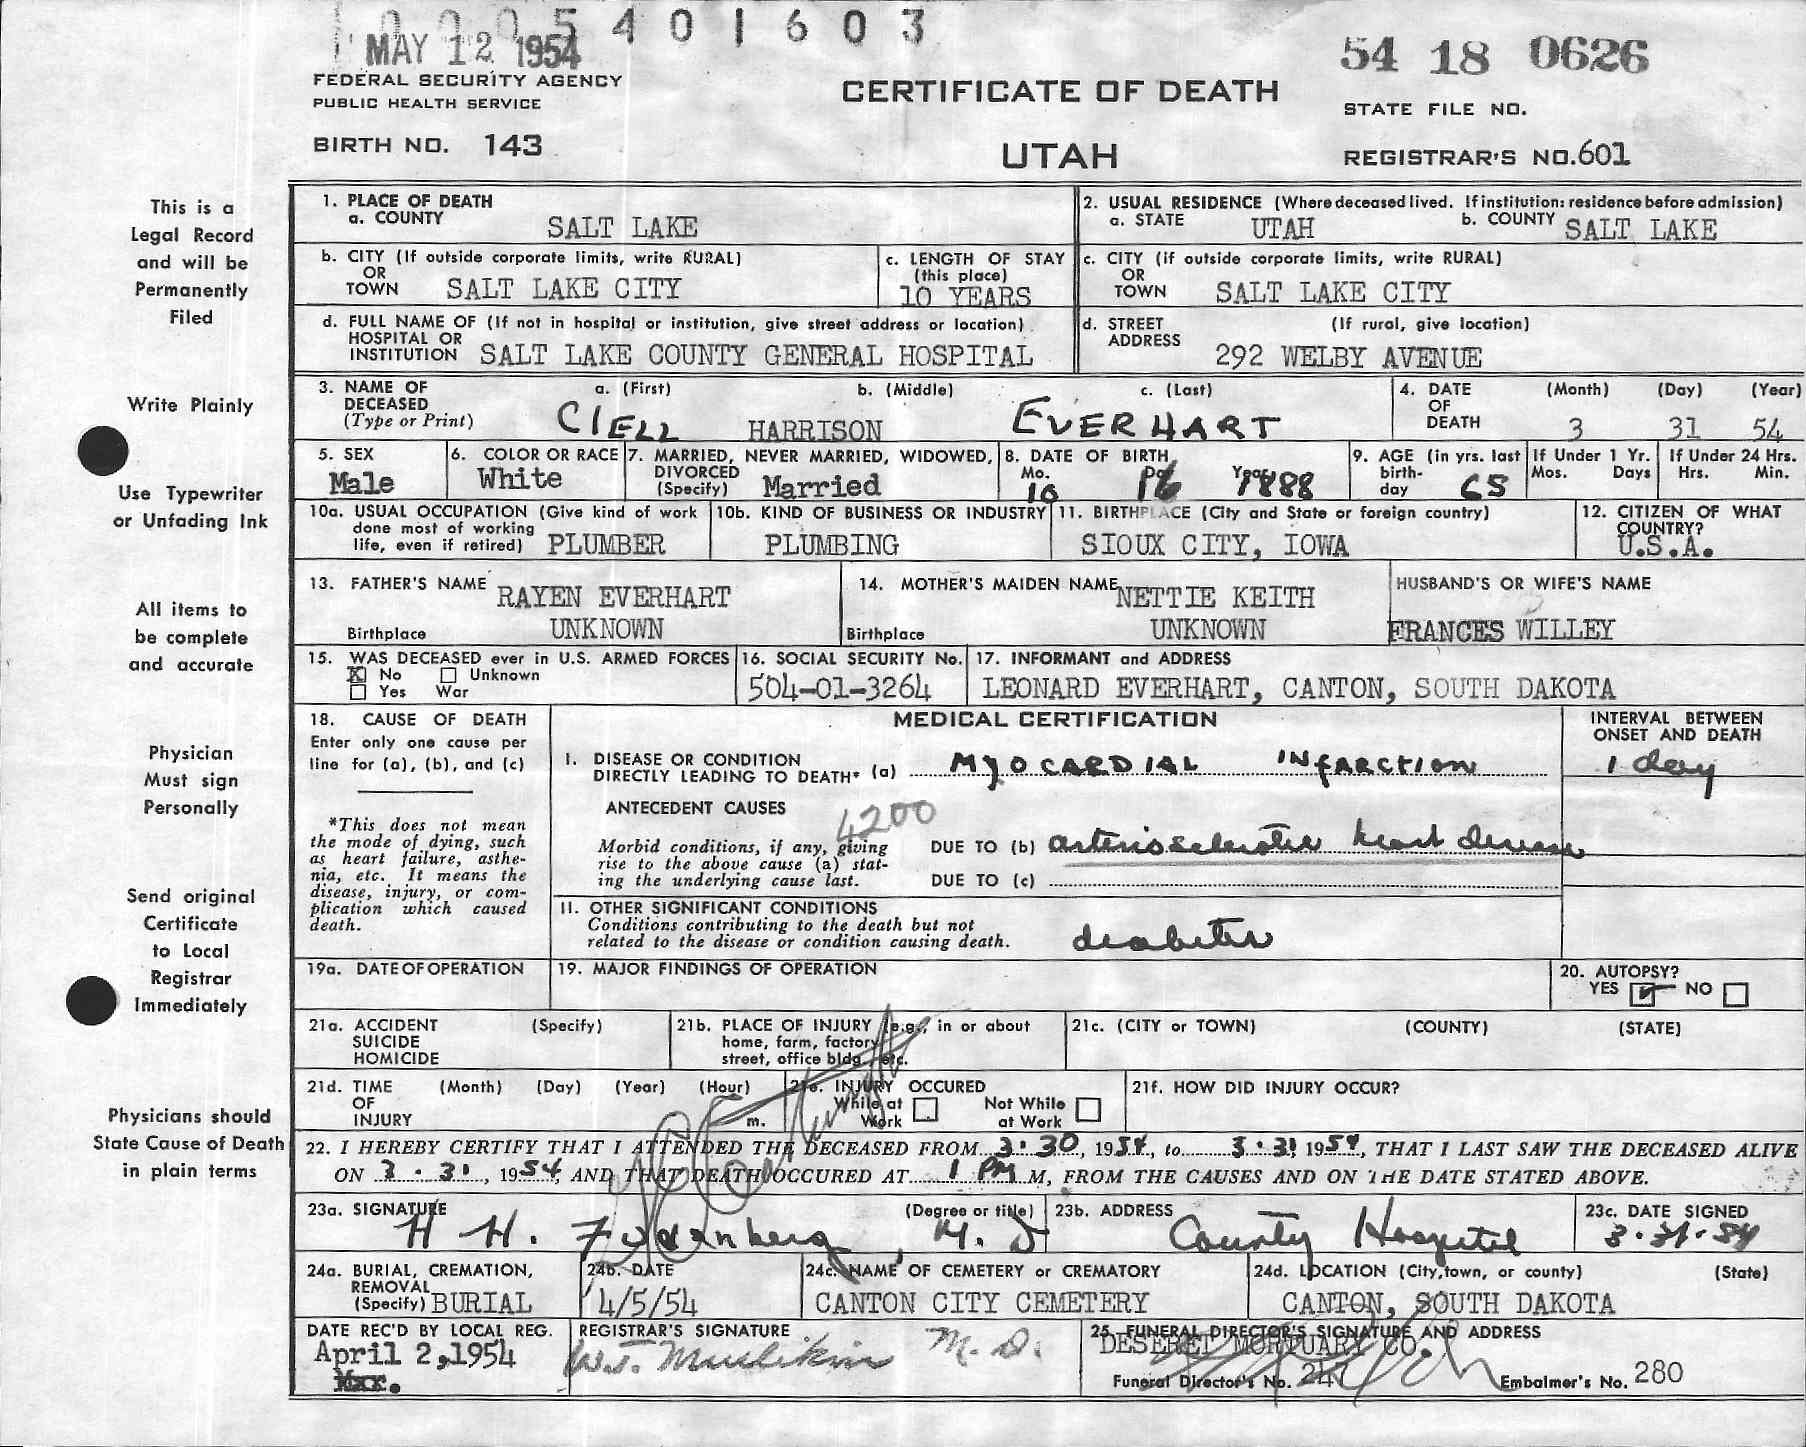 0005401603
MAY 12 1954
54 18 0626
FEDERAL SECURITY AGENCY
PUBLIC HEALTH SERVICE
CERTIFICATE OF DEATH
STATE FILE NO.
BIRTH NO. 143
UTAH
REGISTRAR'S NO. 601
This is a
Legal Record
and will be
Permanently
Filed
Write Plainly
Use Typewriter
or Unfading Ink
All items to
be complete
and accurate
Physician
Must sign
Personally
Send original
Certificate
to Local
Registrar
Immediately
Physicians should
State Cause of Death
in plain terms
1. PLACE OF DEATH
a. COUNTY SALT LAKE
2. USUAL RESIDENCE (Where deceased lived. If institution: residence before admission)
a. STATE UTAH b. COUNTY SALT LAKE
b. CITY (If outside corporate limits, write RURAL)
OR
TOWN SALT LAKE CITY
c. LENGTH OF STAY
(this place)
10 YEARS
c. CITY (if outside corporate limits, write RURAL)
OR
TOWN SALT LAKE CITY
d. FULL NAME OF (If not in hospital or institution, give street address or location)
HOSPITAL OR
INSTITUTION SALT LAKE COUNTY GENERAL HOSPITAL
d. STREET (If rural, give location)
ADDRESS
292 WELBY AVENUE
3. NAME OF a. (First) b. (Middle) c. (Last)
DECEASED
(Type or Print) ClELL HARRISON EVERHART
4. DATE (Month) (Day) (Year)
OF
DEATH 3 31 54
5. SEX
Male
6. COLOR OR RACE
White
7. MARRIED, NEVER MARRIED, WIDOWED,
DIVORCED
(Specify) Married
8. DATE OF BIRTH
Mo. Day Year
10 16 1888
9. AGE (in yrs. last
birth-
day 65
If Under 1 Yr.
Mos. Days
If Under 24 Hrs.
Hrs. Min.
10a. USUAL OCCUPATION (Give kind of work
done most of working
life, even if retired) PLUMBER
10b. KIND OF BUSINESS OR INDUSTRY
PLUMBING
11. BIRTHPLACE (City and State or foreign country)
SIOUX CITY, IOWA
12. CITIZEN OF WHAT
COUNTRY?
U.S.A.
13. FATHER'S NAME RAYEN EVERHART
Birthplace UNKNOWN
14. MOTHER'S MAIDEN NAME NETTIE KEITH
Birthplace UNKNOWN
HUSBAND'S OR WIFE'S NAME
FRANCES WILLEY
15. WAS DECEASED ever in U.S. ARMED FORCES
X No Unknown
Yes War
16. SOCIAL SECURITY No.
504-01-3264
17. INFORMANT and ADDRESS
LEONARD EVERHART, CANTON, SOUTH DAKOTA
18. CAUSE OF DEATH
Enter only one cause per
line for (a), (b), and (c)
*This does not mean
the mode of dying, such
as heart failure, asthe-
nia, etc. It means the
disease, injury, or com-
plication which caused
death.
MEDICAL CERTIFICATION
INTERVAL BETWEEN
ONSET AND DEATH
I. DISEASE OR CONDITION
DIRECTLY LEADING TO DEATH* (a) MYOCARDIAL INFARCTION
1 day
ANTECEDENT CAUSES
4200
Morbid conditions, if any, giving
rise to the above cause (a) stat-
ing the underlying cause last.
DUE TO (b) arteriosclerotic heart disease
DUE TO (c)
II. OTHER SIGNIFICANT CONDITIONS
Conditions contributing to the death but not
related to the disease or condition causing death.
diabetes
19a. DATE OF OPERATION
19. MAJOR FINDINGS OF OPERATION
20. AUTOPSY?
YES NO
21a. ACCIDENT (Specify)
SUICIDE
HOMICIDE
21b. PLACE OF INJURY (e.g., in or about
home, farm, factory
street, office bldg. etc.
21c. (CITY or TOWN) (COUNTY) (STATE)
21d. TIME (Month) (Day) (Year) (Hour)
OF
INJURY m.
21e. INJURY OCCURED
While at Not While
Work at Work
21f. HOW DID INJURY OCCUR?
22. I HEREBY CERTIFY THAT I ATTENDED THE DECEASED FROM 3·30, 1954, to 3·31 1954, THAT I LAST SAW THE DECEASED ALIVE
ON 3·31, 1954, AND THAT DEATH OCCURED AT 1 PM M, FROM THE CAUSES AND ON THE DATE STATED ABOVE.
23a. SIGNATURE (Degree or title)
H H. Fudenberg, M. D
23b. ADDRESS
County Hospital
23c. DATE SIGNED
3·31·54
24a. BURIAL, CREMATION,
REMOVAL
(Specify) BURIAL
24b. DATE
4/5/54
24c. NAME OF CEMETERY or CREMATORY
CANTON CITY CEMETERY
24d. LOCATION (City, town, or county) (State)
CANTON, SOUTH DAKOTA
DATE REC'D BY LOCAL REG.
April 2, 1954
REGISTRAR'S SIGNATURE
M. D.
25. FUNERAL DIRECTOR'S SIGNATURE AND ADDRESS
DESERET MORTUARY CO.
Funeral Director's No. Embalmer's No. 280